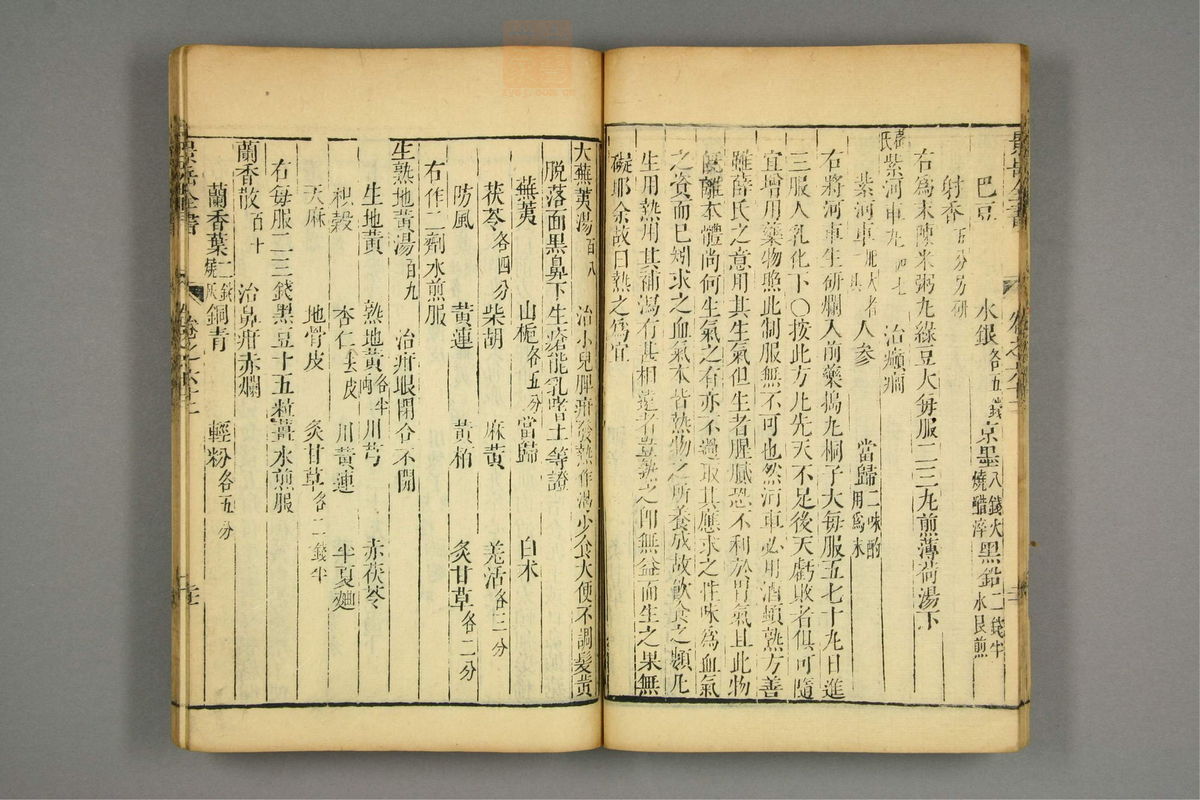 巴豆 水銀各五錢 京墨八錢火燒醋淬 黑鉛二錢半水艮煎
射香五分另研
右爲末陳米粥丸綠豆大每服二三丸煎薄荷湯下
薛氏紫河車丸 治癲癎
紫河車肥大者 人参 當歸二味酌用爲末
右將河車生研爛入前藥搗丸桐子大每服五七十丸日進
三服人乳化下○按此方凡先天不足後天虧敗者俱可隨
宜增用藥物照此制服無不可也然河車必用酒頓熟方善
雖薛氏之意用其生氣但生者腥膩恐不利於胃氣且此物
既離本體尚何生氣之有亦不過取其應求之性味爲血氣
之資而已矧求之血氣本皆熱物之所養成故飲食之類凡
生用熟用其補瀉有甚相遠者豈熟之即無益而生之果無
礙耶余故曰熟之爲宜
大蕪荑湯百八 治小兒脾疳發熱作渴少食大便不調髮黄
脱落面黑鼻下生瘡能乳啃土等證
蕪荑 山梔各五分 當歸 白术
茯苓各四分 柴胡 麻黄 羌活各三分
防風 黄連 黄柏 炙甘草各二分
右作二劑水煎服
生熟地黄湯百九 治疳眼閉合不開
生地黄 熟地黄各半兩 川芎 赤茯苓
枳殼 杏仁去皮 川黄連 半夏麯
天麻 地骨皮 炙甘草各二錢半
右每服二三錢黑豆十五粒薑水煎服
蘭香散百十 治鼻疳赤爛
蘭香葉二錢燒灰 銅青 輕粉各五分